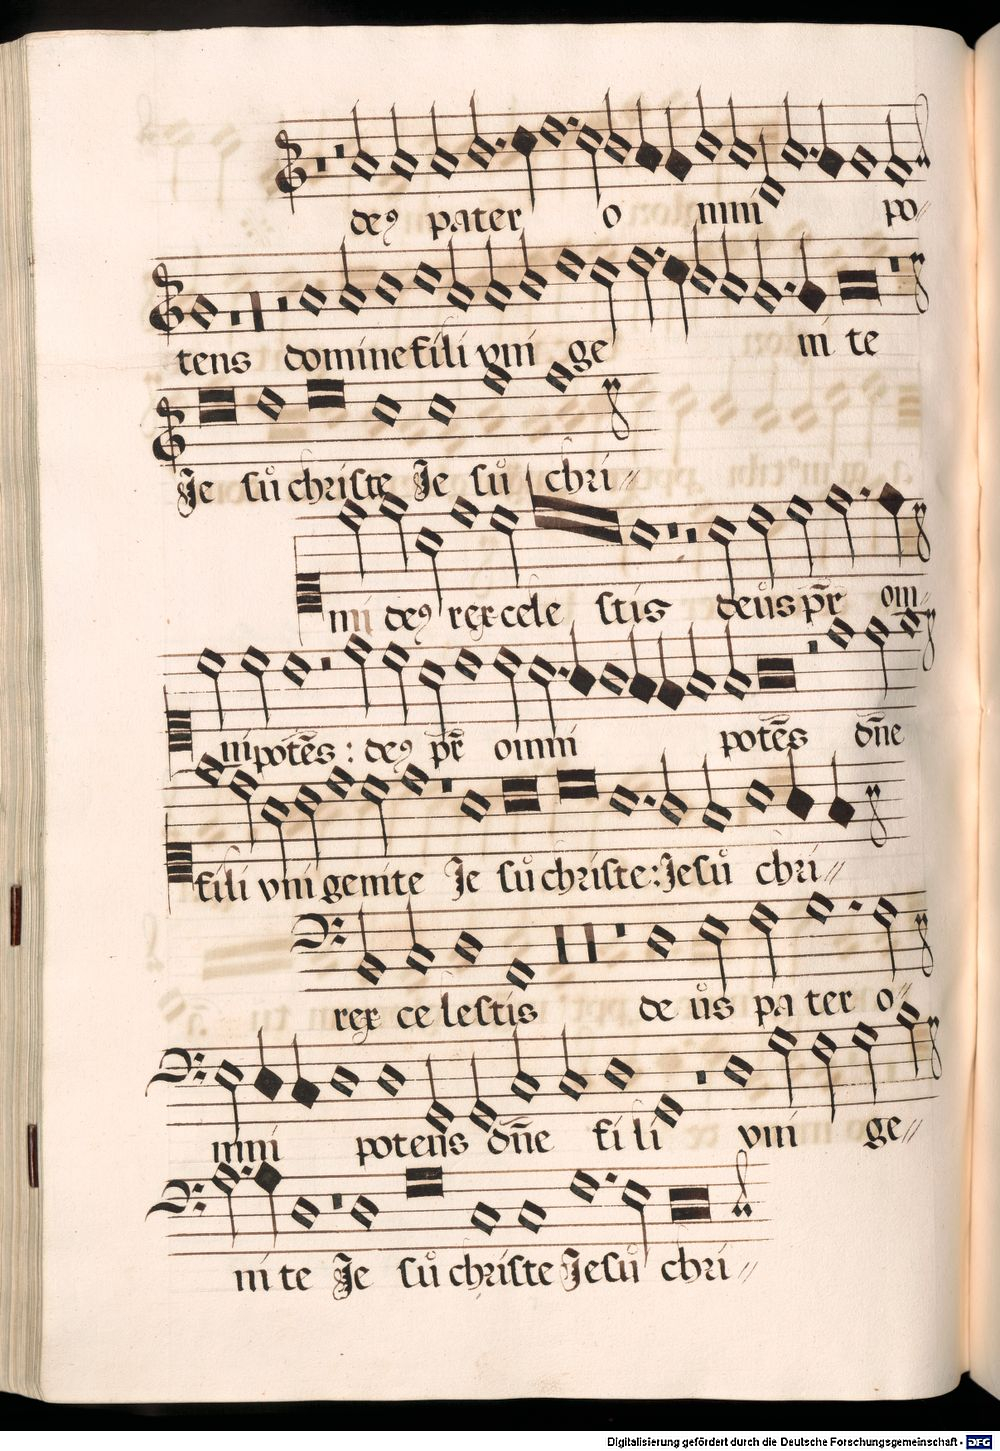 deꝰ pater o mni po
tens domine fili vni ge ni te
Je sů christe Je sů chri
ni deꝰ rex cele stis deůs pr̄ om
nipotēs : deꝰ pr̄ omni potēs dn̄e
fili vnigenite Je sů christe : Jesů chri
rex ce lestis de ůs pa ter o
mni potens dn̄e fi li vni ge
ni te Je sů christe Jesů chri
Digitalisierung gefördert durch die Deutsche Forschungsgemeinschaft - DFG